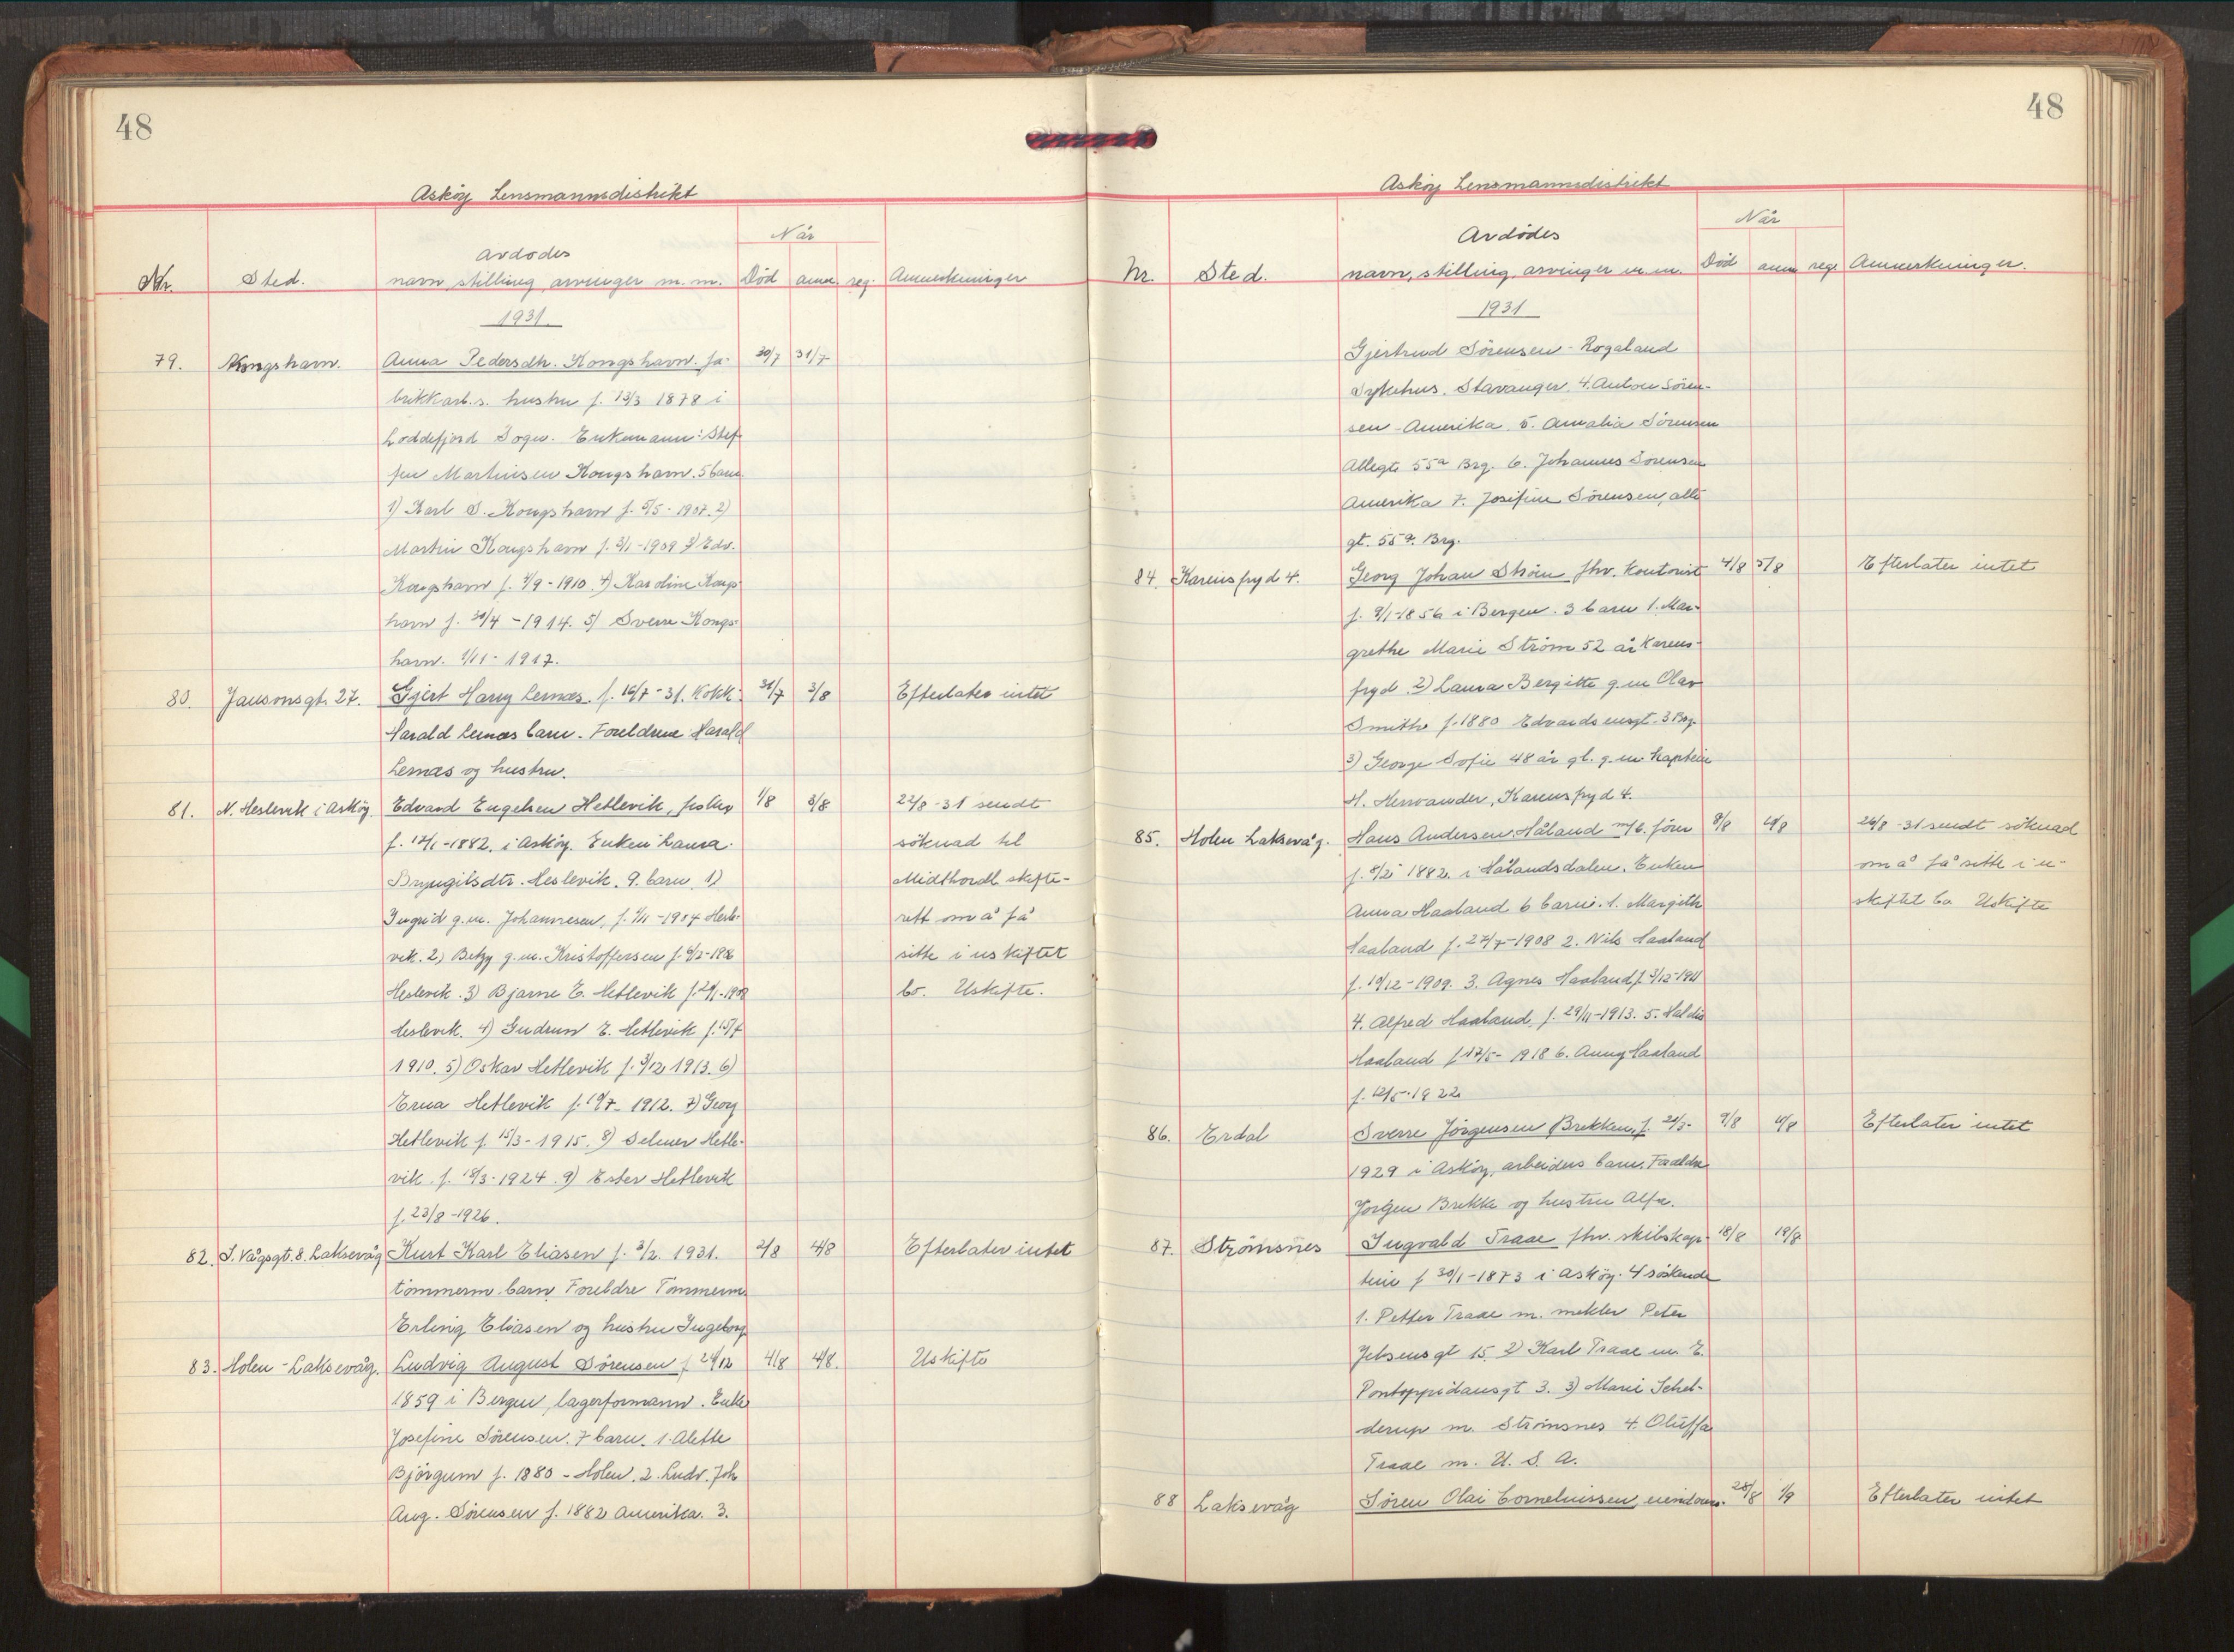 48
Askøy Lensmannsdistrikt
Når
Avdødes
Nr. Sted. navn stilling arvinger m. m. Død anm. reg. Anmerkninger
1931
79. Kongshavn. Anna Pedersdtr. Kongshavn. fa- 30/7 31/7
brikkarb.s. hustru f. 13/3 1878 i
Loddefjord Sogn. Enkemann: Stef-
fen Martinsen Kongshavn. 5 barn
1) Karl S. Kongshavn f. 5/5 - 1907. 2)
Martin Kongshavn f. 3/1 - 1909 3) Edv.
Kongshavn f. 4/9 - 1910. 4) Karoline Kongs-
havn f. 30/4 - 1914. 5) Sverre Kongs-
havn. 1/11 - 1917.
80. Jansonsgt. 27. Gjert Harry Lernæs. f. 16/7 - 31. Kokk 31/7 3/8 Efterlater intet
Harald Lernæs barn. Foreldrene Harald
Lernæs og hustru.
81. N. Heslevik i Askøy. Edvard Engelsen Hetlevik, fisker 1/8 3/8 22/8 - 31 sendt
f. 17/1 - 1882. i Askøy. Enken Laura søknad til
Bryngilsdtr. Heslevik. 9. barn. 1) Midthordl. skifte-
Ingrid g.m. Johannesen, f. 1/11 - 1904 Hesle- rett om å få
vik. 2) Betzy g.m. Kristoffersen f. 6/3 - sitte i uskiftet
Heslevik. 3) Bjarne E. Hetlevik f. 29/1 - 1908 bo. Uskifte.
Heslevik. 4) Gudrun E. Hetlevik f. 15/7
1910. 5) Oskar Hetlevik f. 3/12 1913. 6)
Erna Hetlevik f. 19/7 - 1912. 7) Georg
Hetlevik f. 15/3 - 1915. 8) Selmer Hetle-
vik f. 18/3 - 1924. 9) Ester Hetlevik
f. 23/8 - 1926.
82. S. Vågsgt. 8. Laksevåg Kurt Karl Eliasen f. 3/2. 1931. 2/8 4/8 Efterlater intet
tømmerm. barn Foreldre Tømmerm.
Erling Eliasen og hustru Ingeborg
83. Holen - Laksevåg. Ludvig August Sørensen f. 29/12 4/8 4/8. Uskifte
1859 i Bergen, lagerformann. Enke
Josefine Sørensen. 7 barn. 1. Alette
Bjørgum f. 1880 - Holen. 2. Ludv. Joh
Aug. Sørensen f. 1882 Amerika. 3.
48
Askøy Lensmannsdistrikt
Når
Avdødes
Nr. Sted. navn, stilling, arvinger m. m. Død anm reg. Anmerkninger.
1931
Gjertrud Sørensen - Rogaland
Sykehus. Stavanger. 4. Anton Søren-
sen - Amerika. 5. Amalia Sørensen
Allegt. 55a Brg. 6. Johannes Sørensen
Amerika 7. Josefine Sørensen, alle
gt. 55a. Brg.
84. Karensfryd 4. Georg Johan Strøm fhv. kontorist 4/8 5/8 Efterlater intet
f. 9/1 - 1856 i Bergen. 3 barn 1. Mar-
grethe Marie Strøm 52 år Karens-
fryd. 2) Laura Bergitte g.m Olav
Smith f. 1880 Edvardsensgt. 3 Brg.
3) George Sofie 48 år gl. g.m. Kaptein
H. Herwander, Karensfryd 4.
85. Holen Laksevåg. Hans Andersen Håland m/b. fører 8/8 10/8 26/8 - 31 sendt søknad
f. 8/2 1882. i Hålandsdalen. Enken om å få sitte i u-
Anna Haaland 6 barn. 1. Margith skiftet bo Uskifte
Haaland f. 27/7 - 1908 2. Nils Haaland
f. 10/12 - 1909. 3. Agnes Haaland f. 3/12 - 1911
4. Alfred Haaland. f. 29/11 - 1913. 5. Haldis
Haaland f. 17/5 - 1918 6. Anny Haaland
f. 12/5 - 1922
86. Erdal Sverre Jørgensen Brekken, f. 21/3 - 9/8 11/8 Efterlater intet
1929 i Askøy, arbeiders barn. Foreldre
Jørgen Brekke og hustru Alfa.
87. Strømsnes Ingvald Traae fhv. skibskap- 18/8 19/8
tein f. 30/1 - 1873 i Askøy. 4 søskende
1. Petter Traae m. mekler Peter
Jebsens gt 15. 2) Karl Traae m. E.
Pontoppidansgt 3. 3) Marie Schel-
derup m. Strømsnes 4. Oluffa
Traae m. U. S. A.
88 Laksevåg Søren Olai Corneliussen eiendoms- 28/8 1/9 Efterlater intet